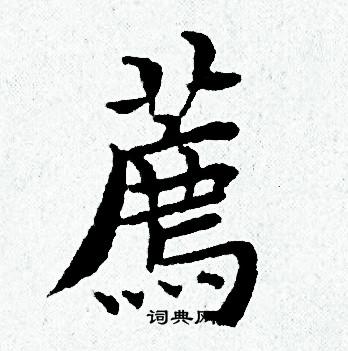 薦
词典网